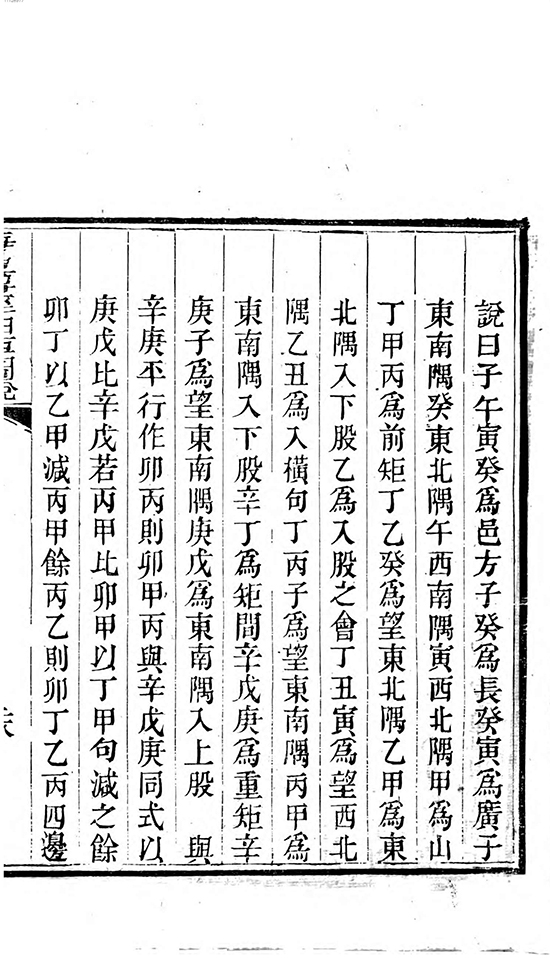 說曰子午寅癸爲邑方子癸爲長癸寅爲廣子
東南隅癸東北隅午西南隅寅西北隅甲爲山
丁甲丙爲前矩丁乙癸爲望東北隅乙甲爲東
北隅入下股乙爲入股之會丁丑寅爲望西北
隅乙丑爲入橫句丁丙子爲望東南隅丙甲爲
東南隅入下股辛丁爲矩間辛戊庚爲重矩辛
庚子爲望東南隅庚戊爲東南隅入上股 與
辛庚平行作卯丙則卯甲丙與辛戊庚同式以
庚戊比辛戊若丙甲比卯甲以丁甲句減之餘
卯丁以乙甲減丙甲餘丙乙則卯丁乙丙四邊
海島算經細草圖說